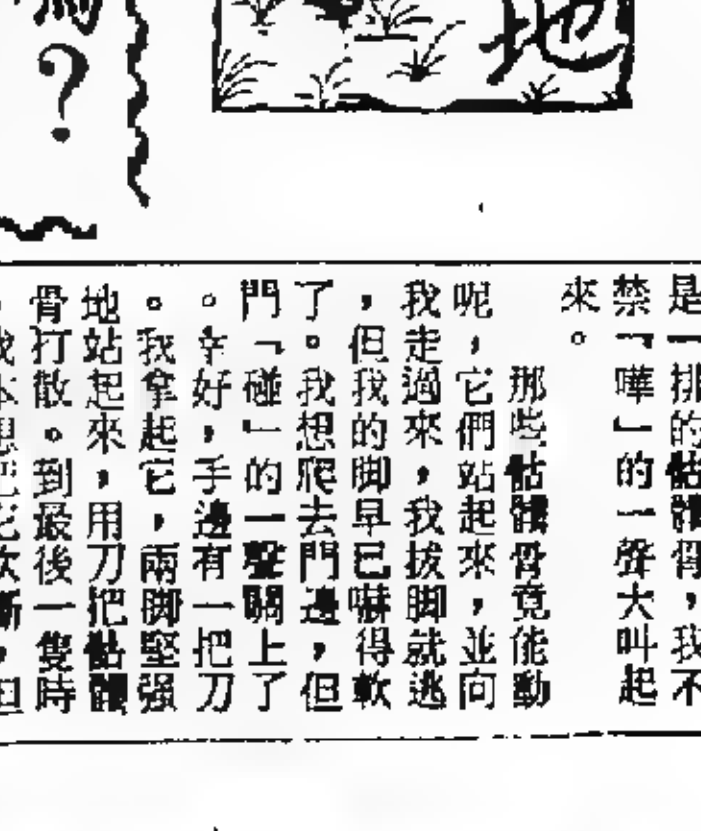 嗎?
地
是一排的骷髏骨,我不
禁「嘩」的一聲大叫起
來。
那些骷髏骨竟能動
呢,它們站起來,並向
我走過來,我拔脚就逃
,但我的脚早已嚇得軟
了。我想爬去門邊,但
門「碰」的一聲關上了
。幸好,手邊有一把刀
。我拿起它,兩脚堅强
地站起來,用刀把骷髏
骨打散。到最後一隻時